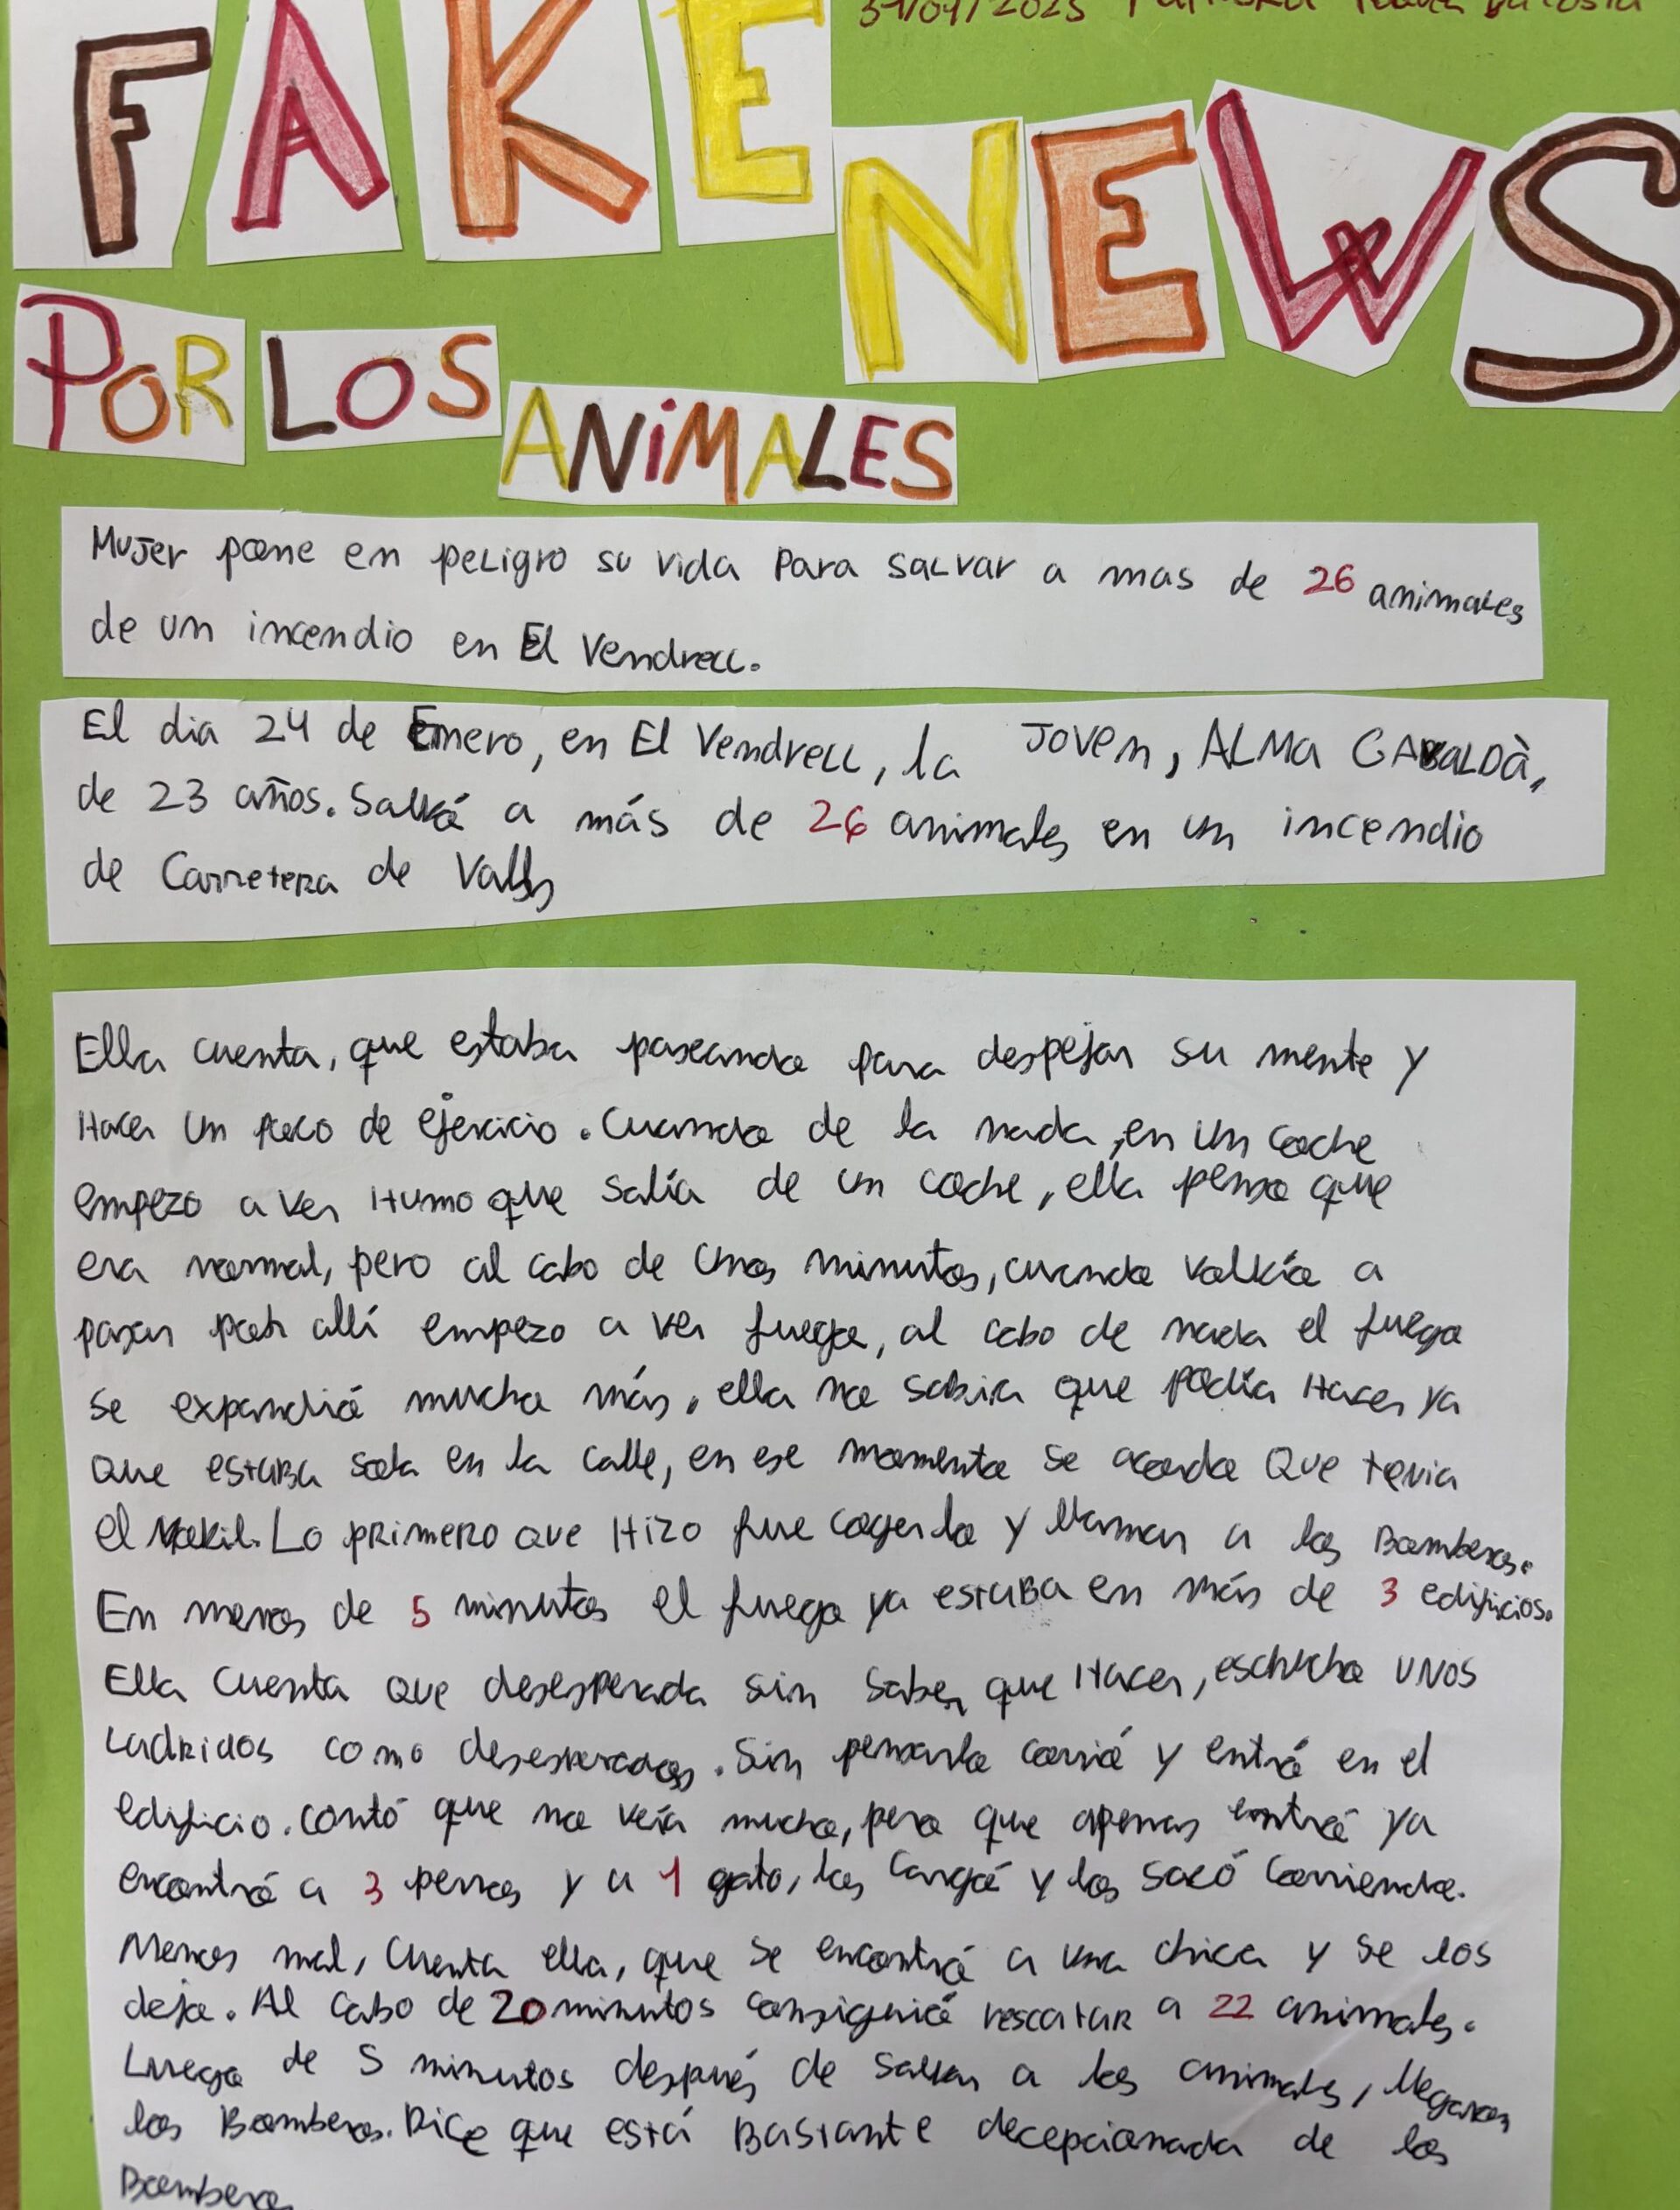 31/01/2025
FAKE NEWS
POR LOS ANiMALES
Mujer pone en peligro su vida para salvar a mas de 26 animales
de un incendio en El Vendrell.
El dia 24 de Enero, en El Vendrell, la Joven, ALMA GABALDÀ,
de 23 años. Salvó a más de 26 animales en un incendio
de Carretera de Valls
Ella cuenta, que estaba paseando para despejar su mente y
Hacer un poco de ejercicio. Cuando de la nada, en un coche
empezo a ver Humo que salía de un coche, ella penso que
era normal, pero al cabo de unos minutos, cuando volvía a
pasar por allí empezo a ver fuego, al cabo de nada el fuego
se expandió mucho más, ella no sabia que podía Hacer ya
que estaba sola en la calle, en ese momento se acordo Que tenia
el Movil. Lo primero que Hizo fue cogerlo y llamar a los Bomberos.
En menos de 5 minutos el fuego ya estaba en más de 3 edificios.
Ella cuenta que desesperada sin saber que Hacer, escucho unos
Ladridos como desesperados. Sin pensarlo corrió y entró en el
edificio. contó que no veía mucho, pero que apenas entró ya
encontró a 3 perros y a 1 gato, los cargó y los sacó corriendo.
Menos mal, cuenta ella, que se encontró a una chica y se los
dejo. Al cabo de 20 minutos consiguió rescatar a 22 animales.
Luego de 5 minutos después de salvar a los animales, llegaron
los Bomberos. Dice que está Bastante decepcionada de los
Bomberos